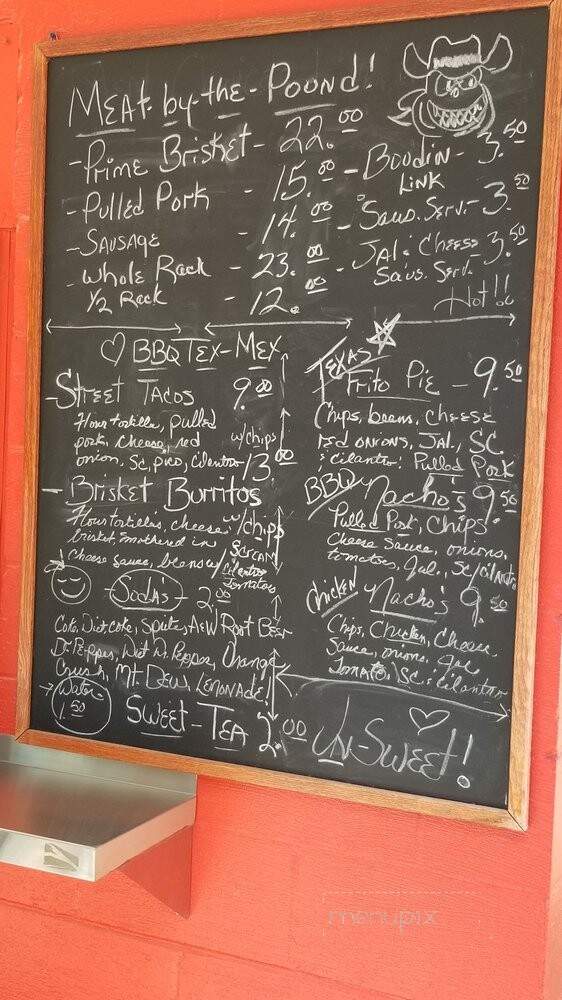 MEAT-by-the-POUND!
-Prime Brisket- 22.00
-Pulled Pork 15.00
-SAUSAGE - 14.00
-Whole Rack - 23.00
1/2 Rack - 12.00
-Boudin- 3.50
LINK
-Saus. Serv.- 3.50
-JAL: Cheese 3.50
Saus. Serv.
Hot!!
BBQ TEX-MEX
-Street Tacos 9.00
Flour tortilla, pulled
pork, cheese, red
onion, SC, pico, cilantro
w/chips
13.00
- Brisket Burritos
Flour tortillas, cheese, w/chips
brisket, smothered in
cheese sauce, beans w/
S CREAM
cilantro
tomatoes
-Soda's- 2.00
Coke, Diet Coke, Sprite, A&W Root Beer
Dr. Pepper, Diet Dr. Pepper, Orange
Crush, Mt. Dew, LEMONADE!
Water
1.50
SWEET-TEA 2.00
TEXAS
Frito Pie - 9.50
Chips, beans, cheese
red onions, JAL, SC
; cilantro! Pulled Pork
BBQ Nacho's 9.50
Pulled Pork, Chips
Cheese Sauce, onions,
tomatoes, Jal., SC/cilantro
Chicken Nacho's 9.50
Chips, Chicken, Cheese
Sauce, onions, Jal
Tomato, SC & cilantro
UN-SWEET!
menupix